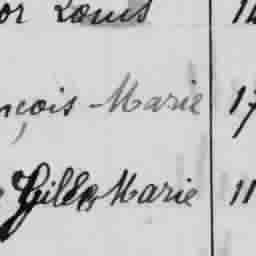 or Louis 1
nçois-Marie 17
Gilles Marie 11